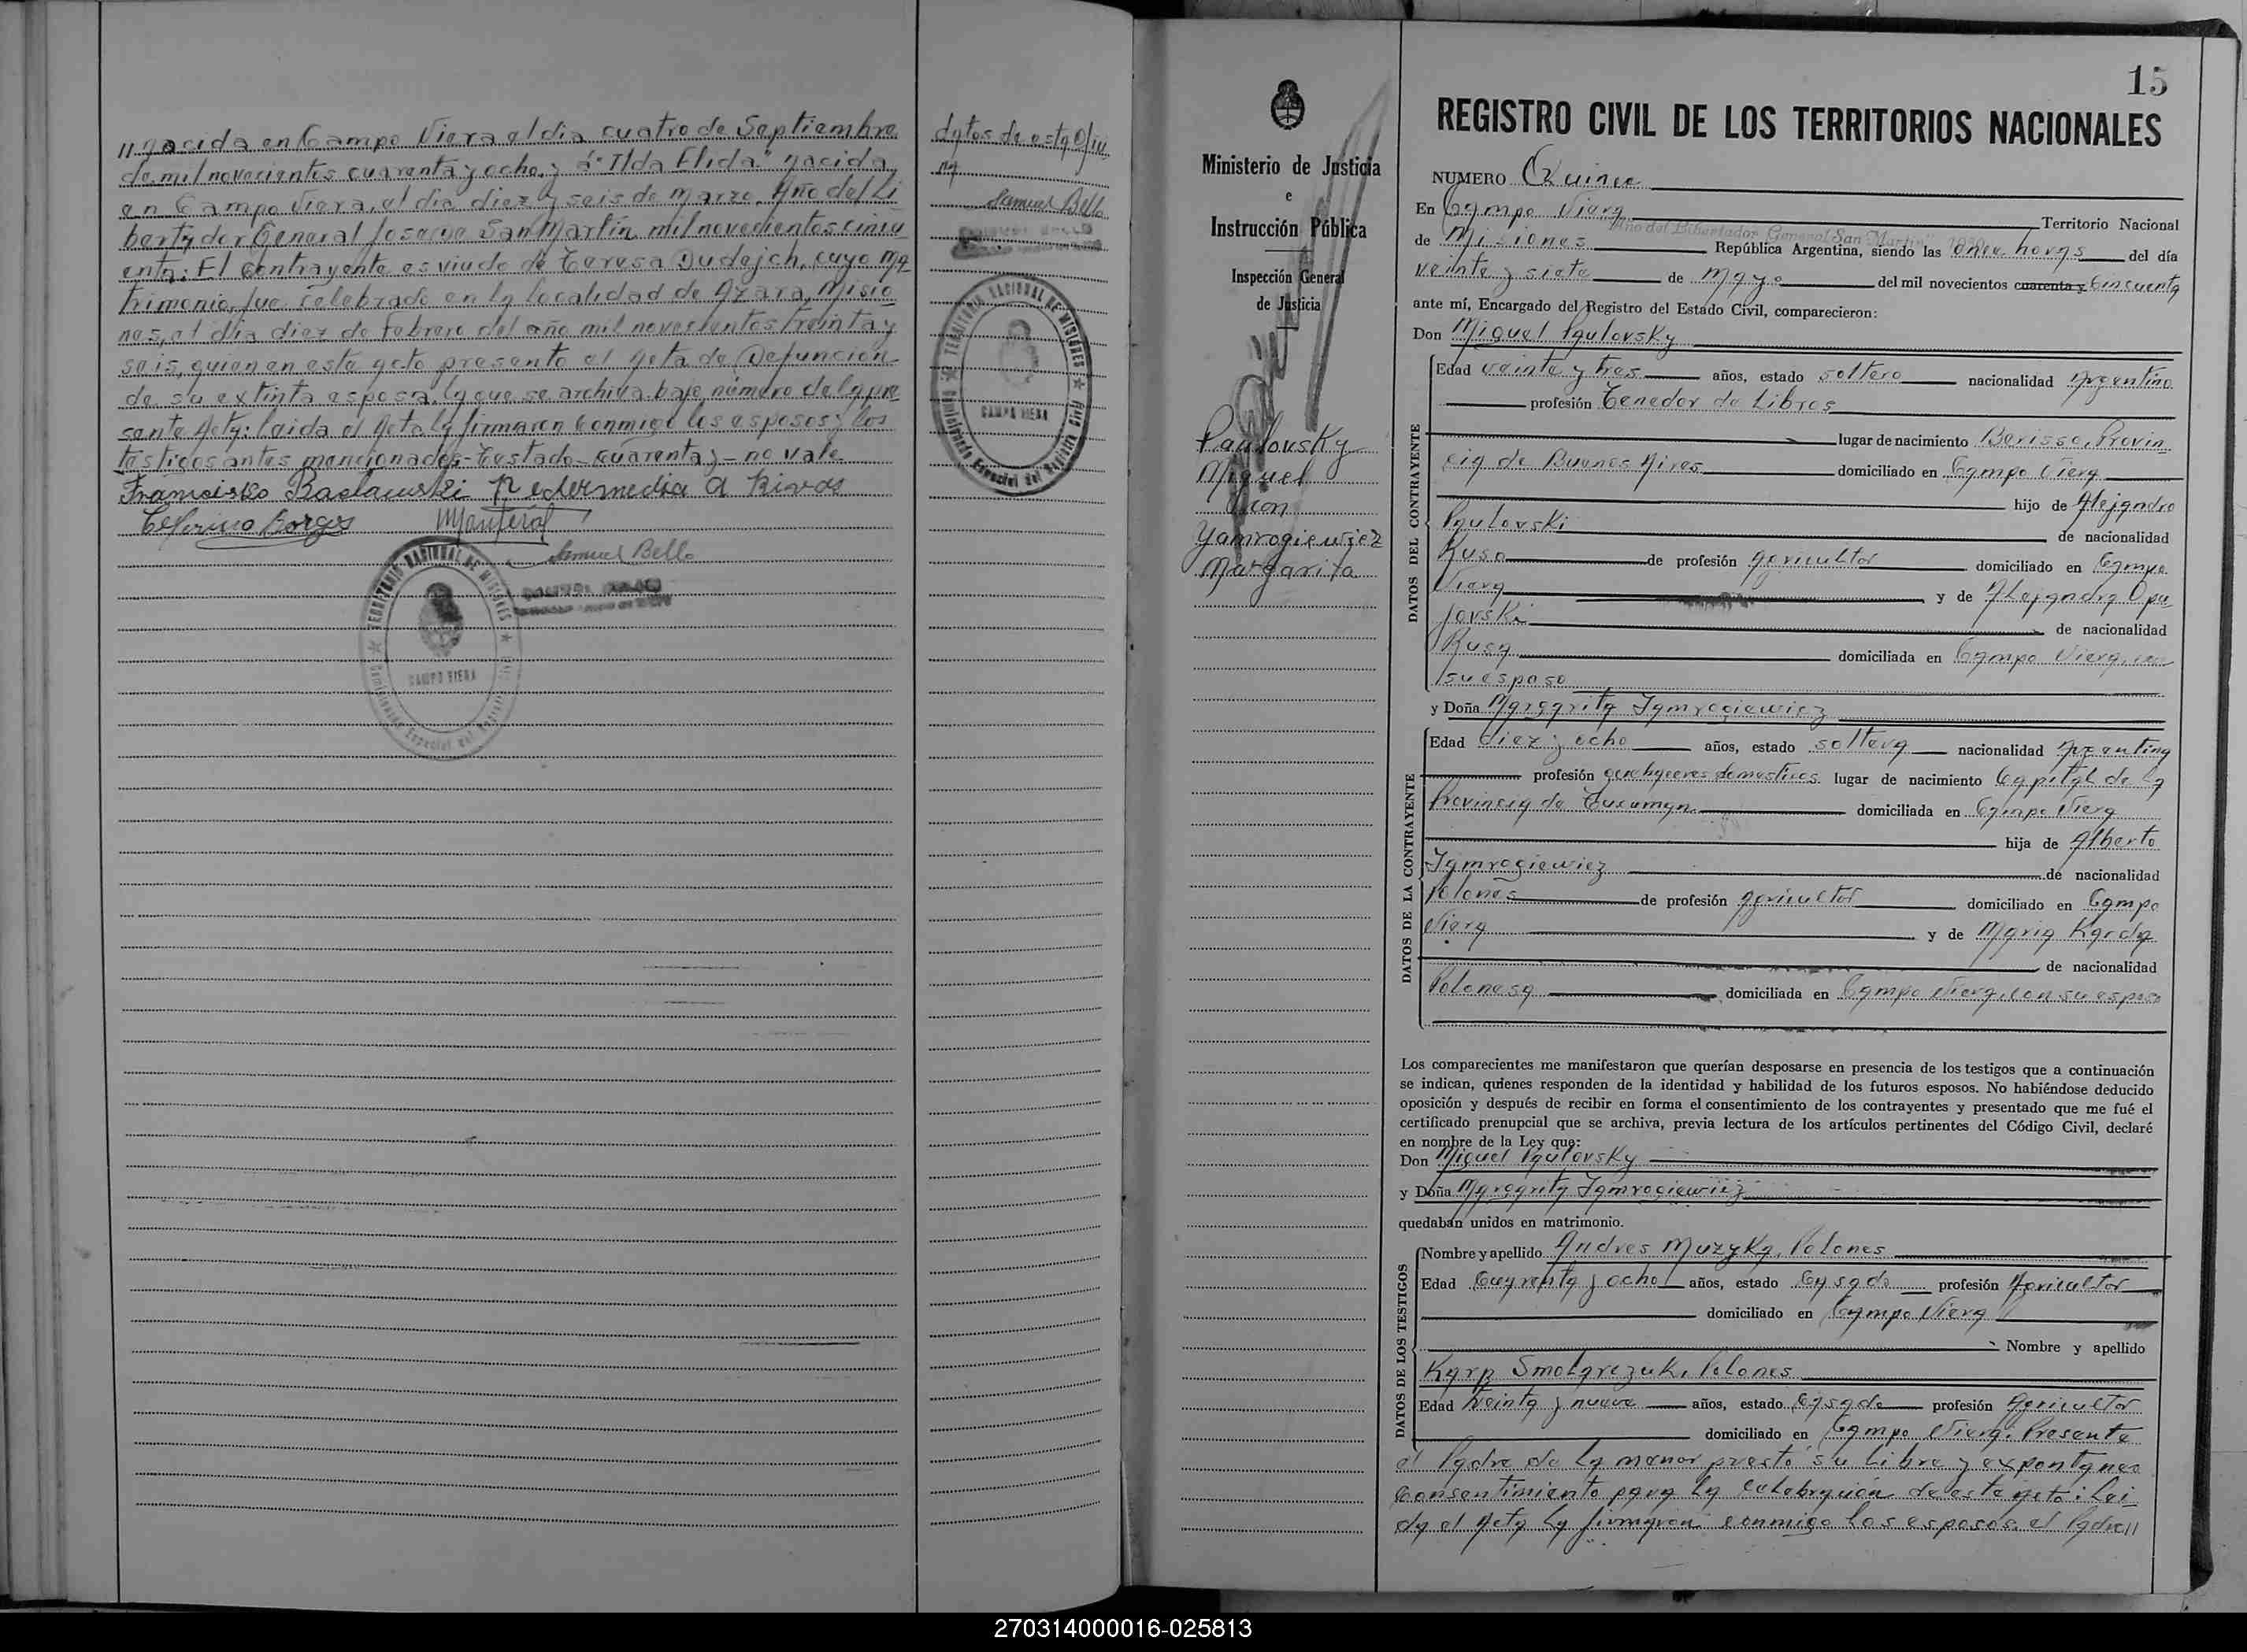 "nacida en Campo Viera el dia cuatro de Septiembre
de mil novecientos cuarenta y ocho y á "Ilda Elida" nacida
en Campo Viera, el dia diez y seis de Marzo, Año del Li
bertador General José de San Martín mil novecientos cincu
enta: El Contrayente es viudo de Teresa Dudajch, cuyo ma
trimonio fue celebrado en la localidad de Azara, Misio
nes, el dia diez de Febrero del año mil novecientos treinta y
seis, quien en este acto presento el Acta de Defuncion
de su extinta esposa, la que se archiva bajo número de la pre
sente Acta: Leida el Acta la firmaron conmigo los esposos y los
testigos antes mencionados-Testado-cuarenta y-no vale.
Francisko Baclawski
Ceferino Borges
Samuel Bello
TERRITORIO NACIONAL DE MISIONES
CAMPO VIERA
Comisionado Especial del Registro Civil
datos de esta Ofici
na
Samuel Bello
TERRITORIO NACIONAL DE MISIONES
CAMPO VIERA
Comisionado Especial del Registro Civil
Ministerio de Justicia
e
Instrucción Pública
Inspección General
de Justicia
Paulovsky
Miguel
con
Yamrogiewiez
Margarita
15
REGISTRO CIVIL DE LOS TERRITORIOS NACIONALES
NUMERO Quince
En Campo Viera Territorio Nacional
"Año del Libertador General San Martin"
de Misiones República Argentina, siendo las once horas del día
veinte y siete de Mayo del mil novecientos cuarenta y Cincuenta
ante mí, Encargado del Registro del Estado Civil, comparecieron:
Don Miguel Paulovsky
DATOS DEL CONTRAYENTE
Edad veinte y tres años, estado soltero nacionalidad Argentino
profesión Tenedor de Libros
lugar de nacimiento Berisso, Provin
cia de Buenos Aires domiciliado en Campo Viera
hijo de Alejandro
Paulovski de nacionalidad
Ruso de profesión Agricultor domiciliado en Campo
Viera y de Alejandra Opa
jovski de nacionalidad
Rusa domiciliada en Campo Viera, con
su esposo
y Doña Margarita Iamrogiewiez
DATOS DE LA CONTRAYENTE
Edad diez y ocho años, estado soltera nacionalidad Argentina
profesión quehaceres domesticos lugar de nacimiento Capital de la
Provincia de Tucuman domiciliada en Campo Viera
hija de Alberto
Iamrogiewiez de nacionalidad
Polones de profesión Agricultor domiciliado en Campo
Viera y de Maria Kagda
de nacionalidad
Polonesa domiciliada en Campo Viera, con su esposo
Los comparecientes me manifestaron que querían desposarse en presencia de los testigos que a continuación
se indican, quienes responden de la identidad y habilidad de los futuros esposos. No habiéndose deducido
oposición y después de recibir en forma el consentimiento de los contrayentes y presentado que me fué el
certificado prenupcial que se archiva, previa lectura de los artículos pertinentes del Código Civil, declaré
en nombre de la Ley que:
Don Miguel Paulovsky
y Doña Margarita Iamrogiewiez
quedaban unidos en matrimonio.
DATOS DE LOS TESTIGOS
Nombre y apellido Andres Muzyka, Polones
Edad Cuarenta y ocho años, estado Casado profesión Agricultor
domiciliado en Campo Viera
Nombre y apellido
Karp Smolarczuk, Polones
Edad treinta y nueve años, estado Casado profesión Agricultor
domiciliado en Campo Viera. Presente
el Padre de la menor prestó su libre y expontaneo
Consentimiento para la celebración de este acto: Lei
da el Acta la firmaron conmigo los esposos el Padre"
270314000016-025813